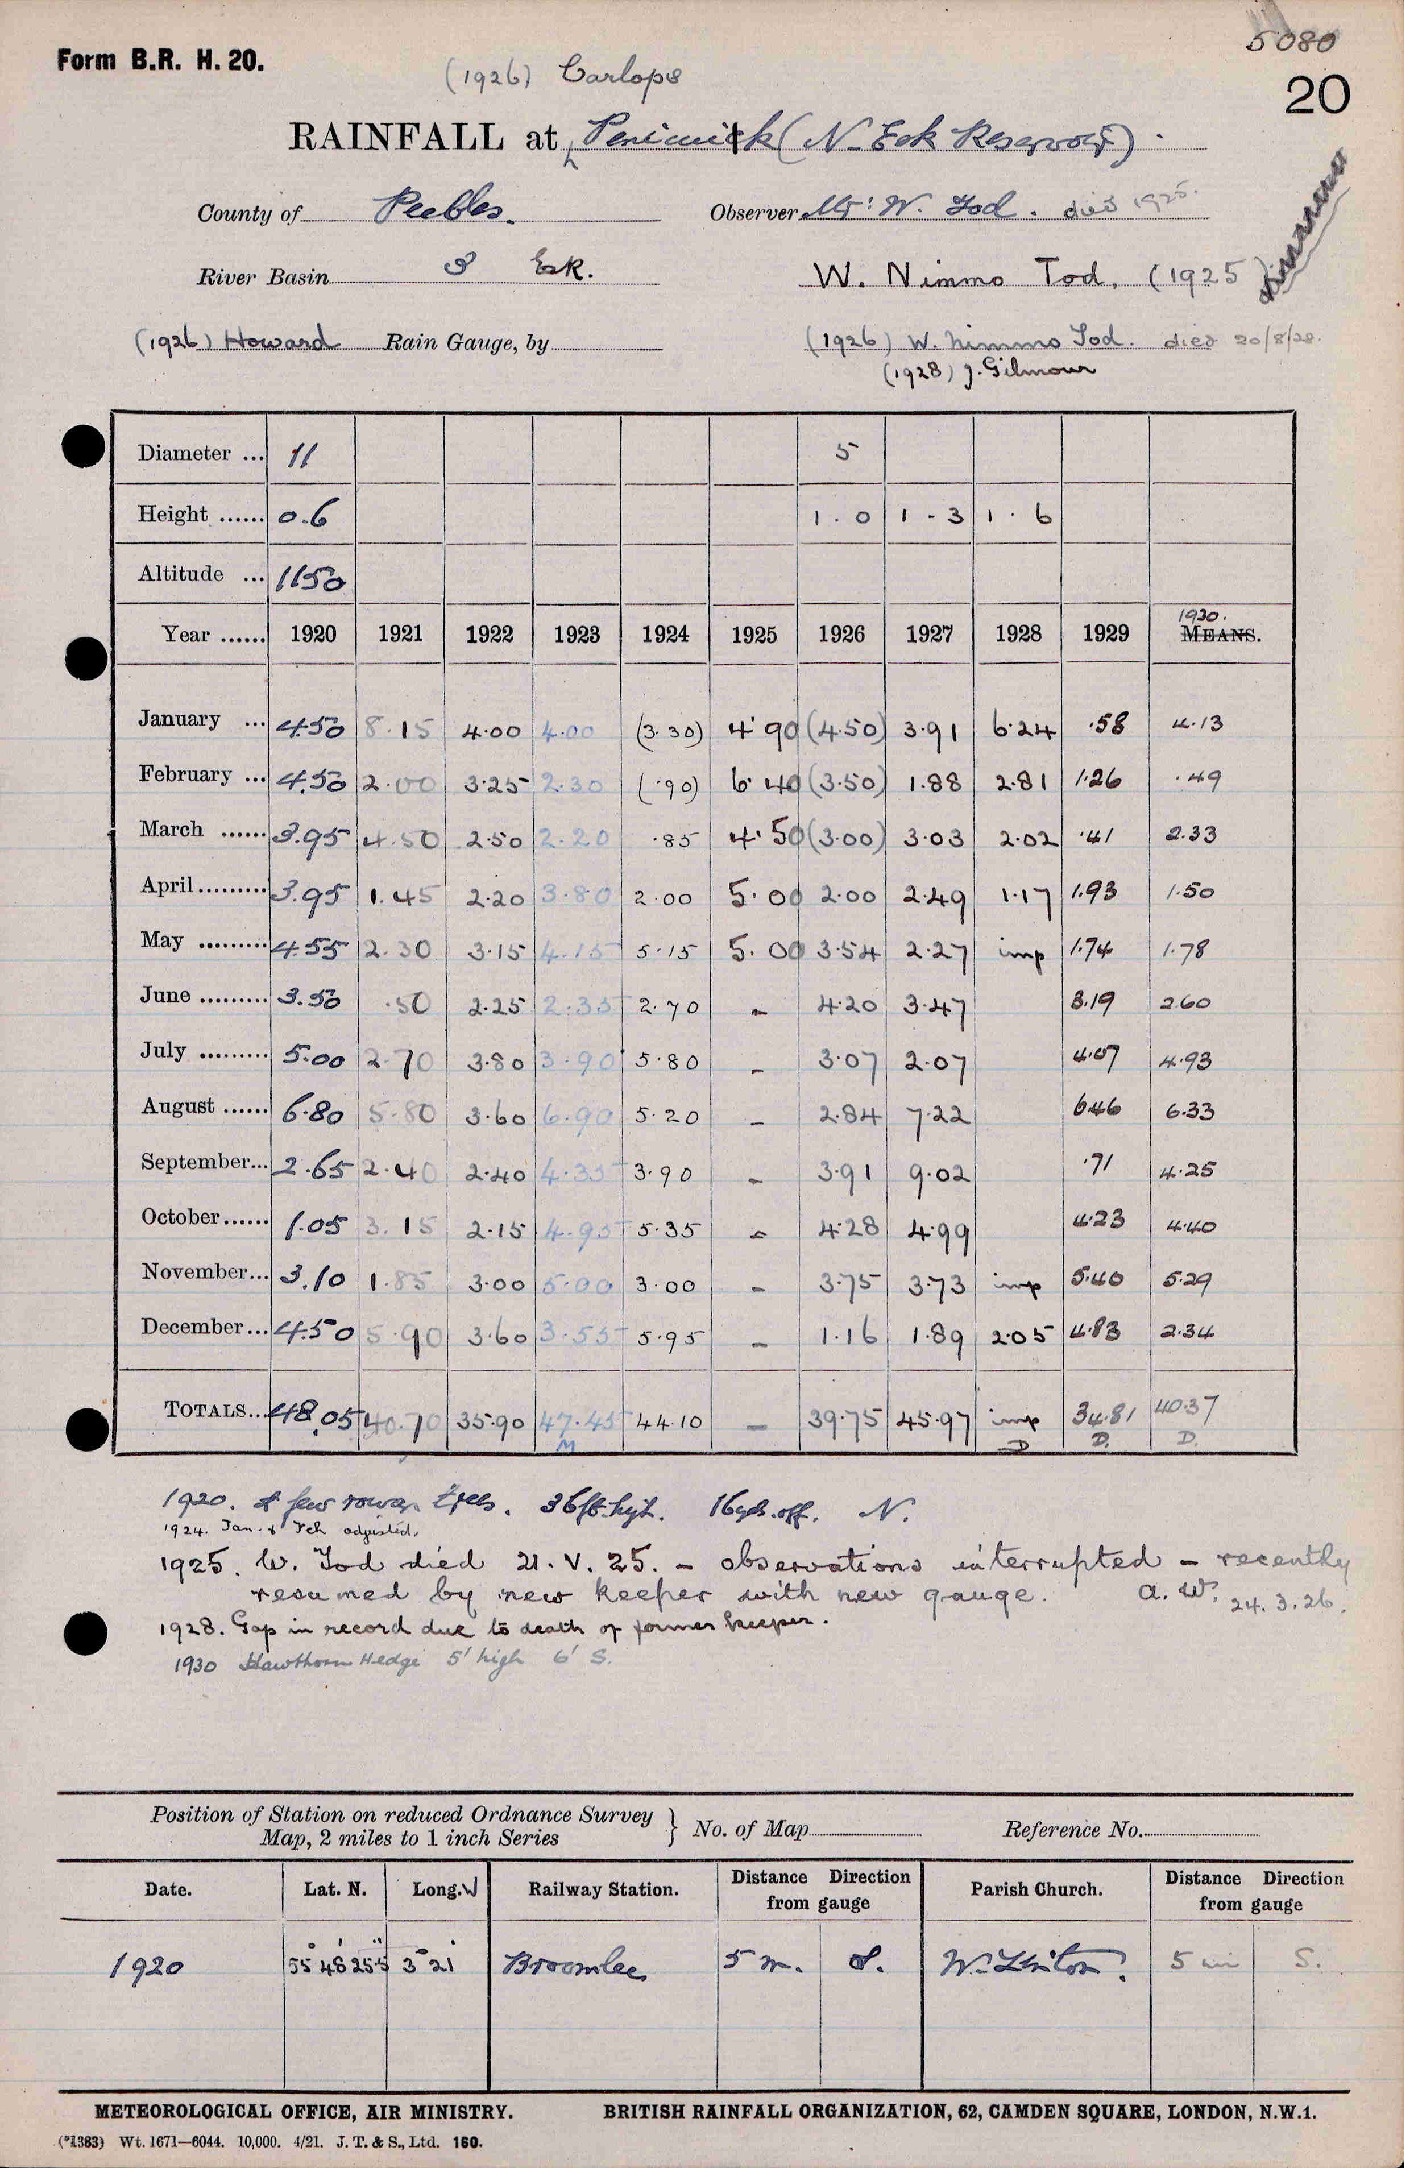 5080
Form B.R. H. 20.
20
(1926) Carlops
RAINFALL at Penicuik (N. Esk Reservoir).
County of Peebles. Observer Mr. W. Tod. died 1925.
River Basin Esk. W. Nimmo Tod. (1925)
(1926) Howard Rain Gauge, by (1926) W. Nimmo Tod. died 20/8/28.
(1928) J. Gilmour
Diameter ... 11 5
Height ...... 0.6 1.0 1-3 1.6
Altitude ... 1150
1930.
Year ...... 1920 1921 1922 1923 1924 1925 1926 1927 1928 1929 MEANS.
January ... 4.50 8.15 4.00 4.00 (3.30) 4.90 (4.50) 3.91 6.24 .58 4.13
February ... 4.50 2.00 3.25 2.30 (.90) 6.40 (3.50) 1.88 2.81 1.26 .49
March ...... 3.95 4.50 2.50 2.20 .85 4.50 (3.00) 3.03 2.02 .41 2.33
April ......... 3.95 1.45 2.20 3.80 2.00 5.00 2.00 2.49 1.17 1.93 1.50
May ......... 4.55 2.30 3.15 4.15 5.15 5.00 3.54 2.27 imp 1.74 1.78
June ......... 3.50 .50 2.25 2.35 2.70 - 4.20 3.47 3.19 2.60
July ......... 5.00 2.70 3.80 3.90 5.80 - 3.07 2.07 4.07 4.93
August ...... 6.80 5.80 3.60 6.90 5.20 - 2.84 7.22 6.46 6.33
September... 2.65 2.40 2.40 4.35 3.90 - 3.91 9.02 .71 4.25
October...... 1.05 3.15 2.15 4.95 5.35 - 4.28 4.99 4.23 4.40
November... 3.10 1.85 3.00 5.00 3.00 - 3.75 3.73 imp 5.40 5.29
December... 4.50 5.90 3.60 3.55 5.95 - 1.16 1.89 2.05 4.83 2.34
TOTALS... 48.05 40.70 35.90 47.45 44.10 - 39.75 45.97 imp 34.81 40.37
M D D. D.
1920. A few rowan trees. 36ft. high. 16yds. off. N.
1924. Jan. & Feb adjusted.
1925. W. Tod died 21.V.25. - observations interrupted - recently
resumed by new keeper with new gauge. A.W. 24.3.26.
1928. Gap in record due to death of former keeper.
1930 Hawthorn Hedge 5' high 6' S.
Position of Station on reduced Ordnance Survey
Map, 2 miles to 1 inch Series } No. of Map Reference No.
Date. Lat. N. Long. W Railway Station. Distance Direction from gauge Parish Church. Distance Direction from gauge
1920 55° 48' 25.5" 3° 21' Broomlee 5 m. S. W. Linton. 5 m S.
METEOROLOGICAL OFFICE, AIR MINISTRY. BRITISH RAINFALL ORGANIZATION, 62, CAMDEN SQUARE, LONDON, N.W.1.
(*1383) Wt. 1671—6044. 10,000. 4/21. J. T. & S., Ltd. 160.